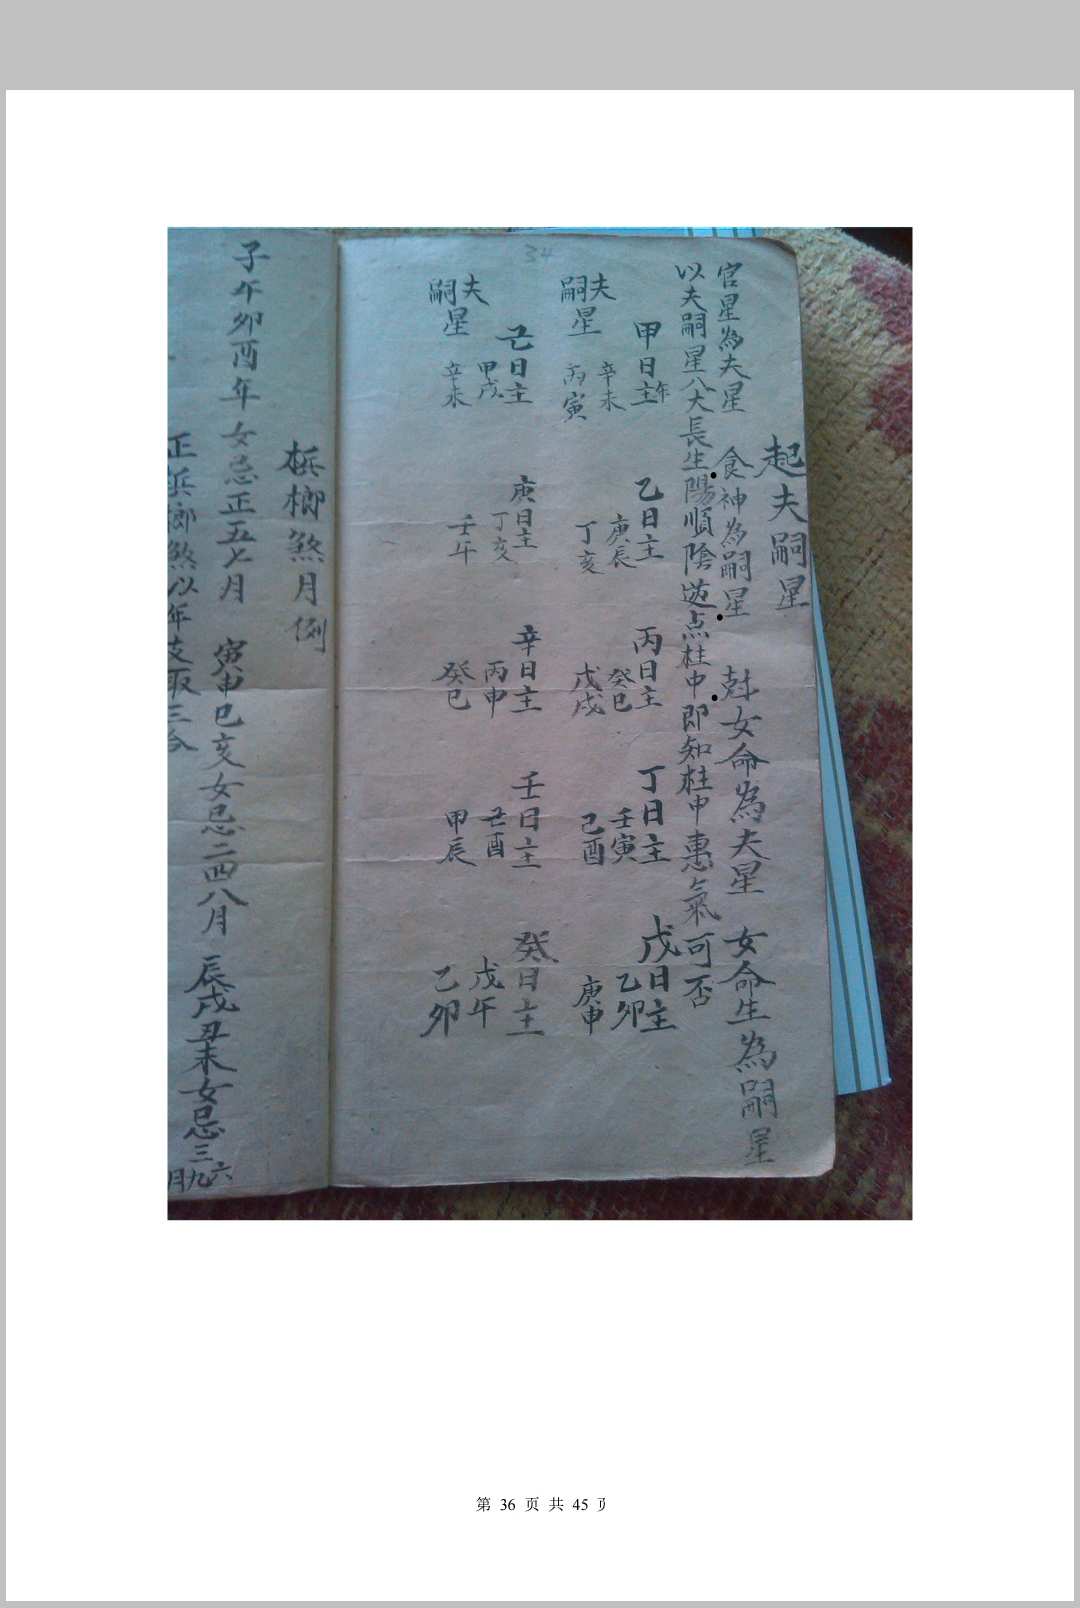 34
起夫嗣星
官星為夫星 食神為嗣星 尅女命為夫星 女命生為嗣星
以夫嗣星入大長生陽順陰逆点柱中即知柱中惠氣可否
甲日主年 乙日主 丙日主 丁日主 戊日主
夫 辛未 庚辰 癸巳 壬寅 乙卯
嗣星 丙寅 丁亥 戊戌 己酉 庚申
己日主 庚日主 辛日主 壬日主 癸日主
夫 甲戌 丁亥 丙申 己酉 戊午
嗣星 辛未 壬午 癸巳 甲辰 乙卯
梹榔煞月例
子午卯酉年女忌正五七月 寅申巳亥女忌二四八月 辰戌丑未女忌三六九月
正梹榔煞以年支取三合
第 36 页 共 45 页